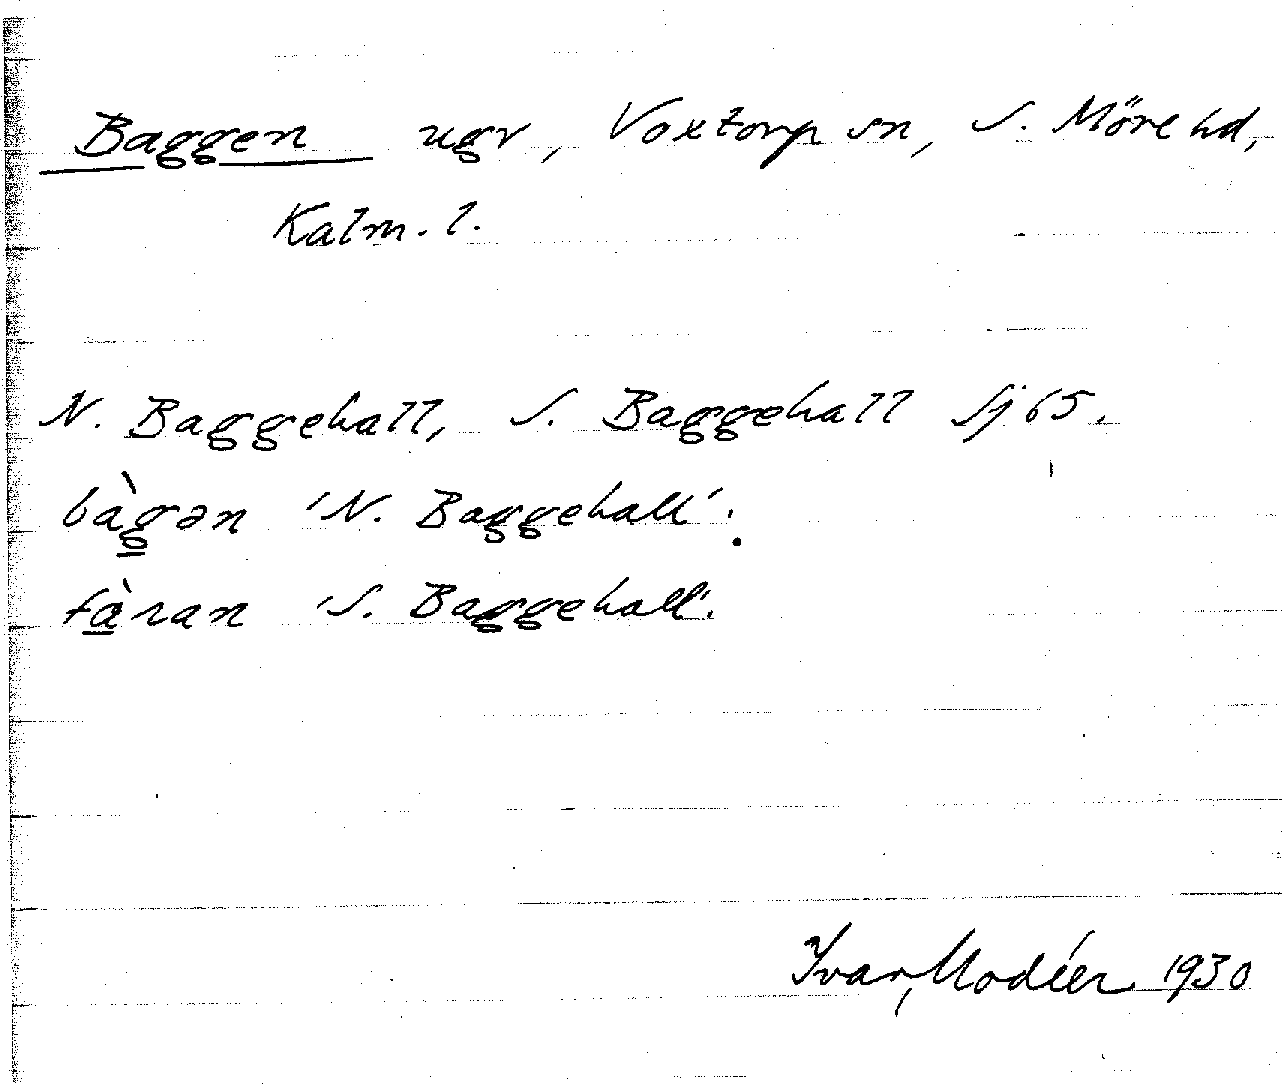 Baggen ugr, Voxtorp sn, S. Möre hd,
Kalm. l.
N. Baggehall, S. Baggehall Sj 65.
bàgən 'N. Baggehall'.
fàran 'S. Baggehall'.
Ivar Modéer 1930